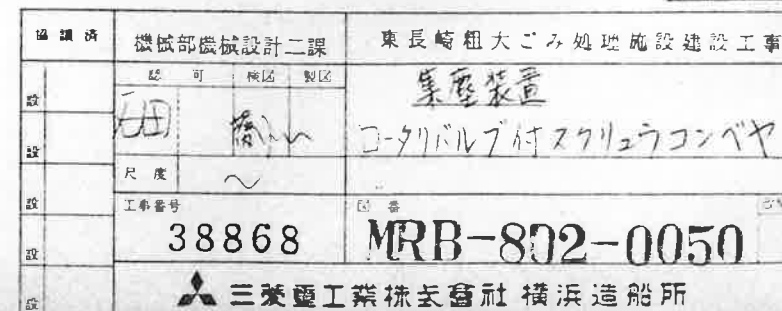 協議済
機械部機械設計二課
東長崎粗大ごみ処理施設建設工事
認可
検図
製図
集塵装置
ロータリバルブ付スクリュウコンベヤ
設
設
尺度
〜
設
工事番号
図番
38868
MRB-802-0050
設
三菱重工業株式会社 横浜造船所
設